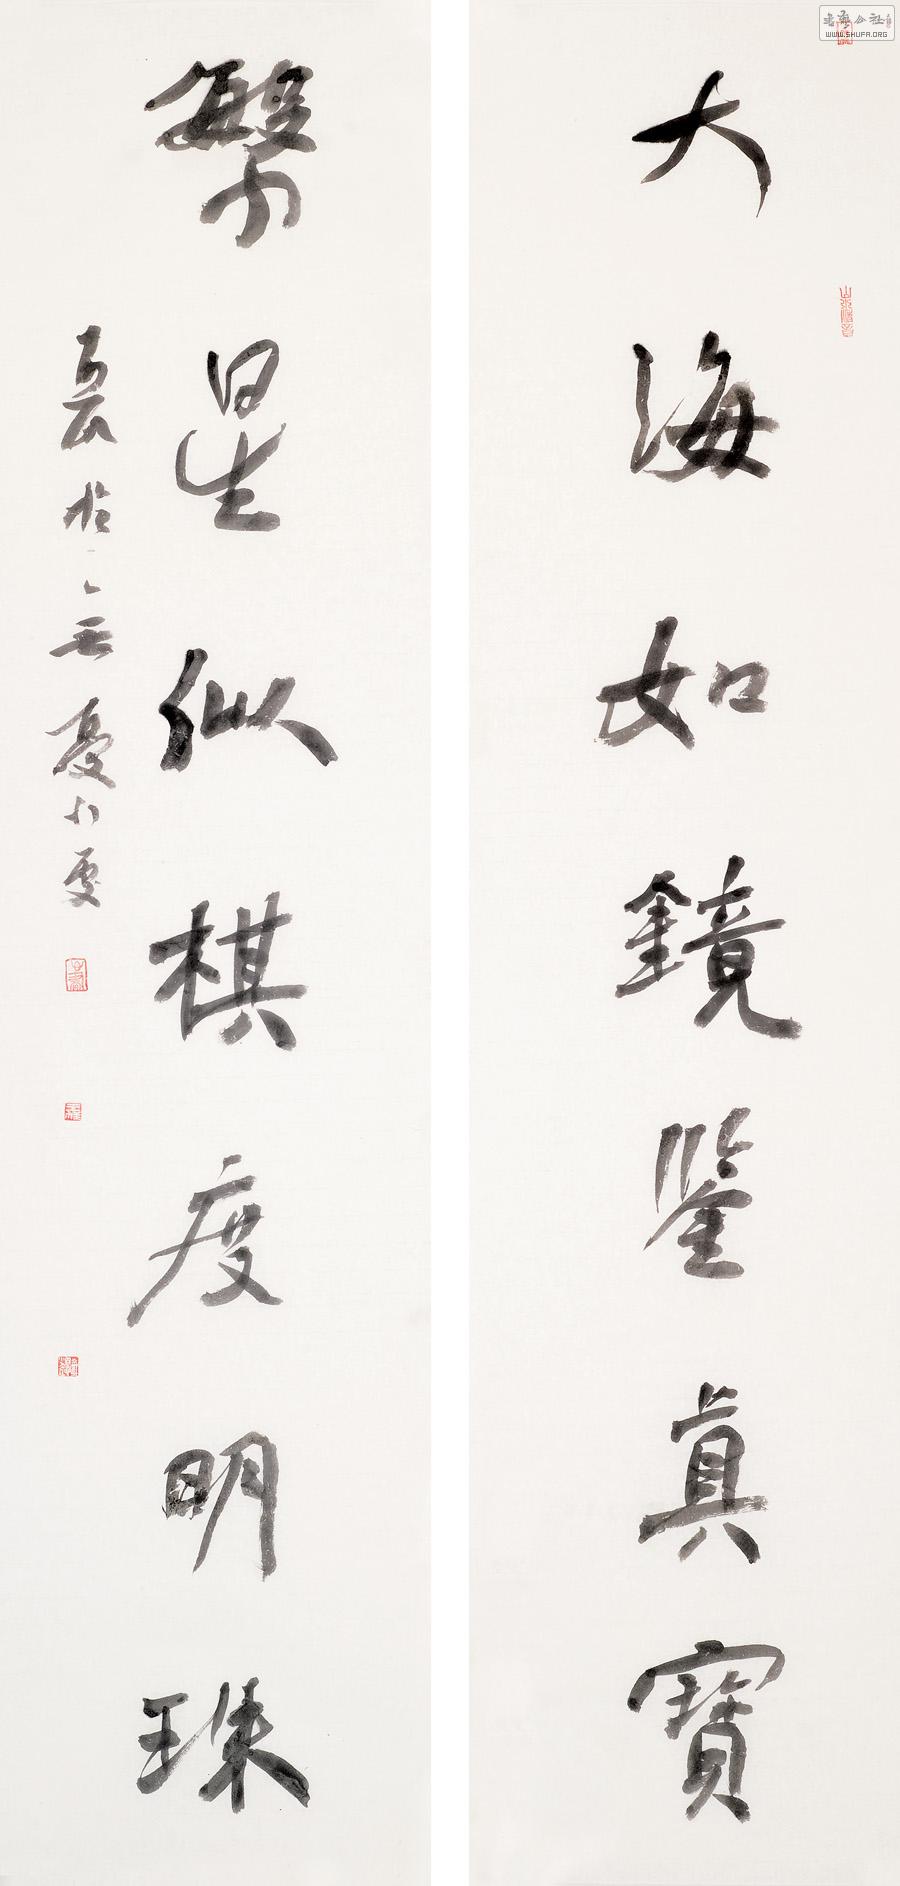 大海如鏡鑒真寶
繁星似棋度明珠
WWW.SHUFA.ORG